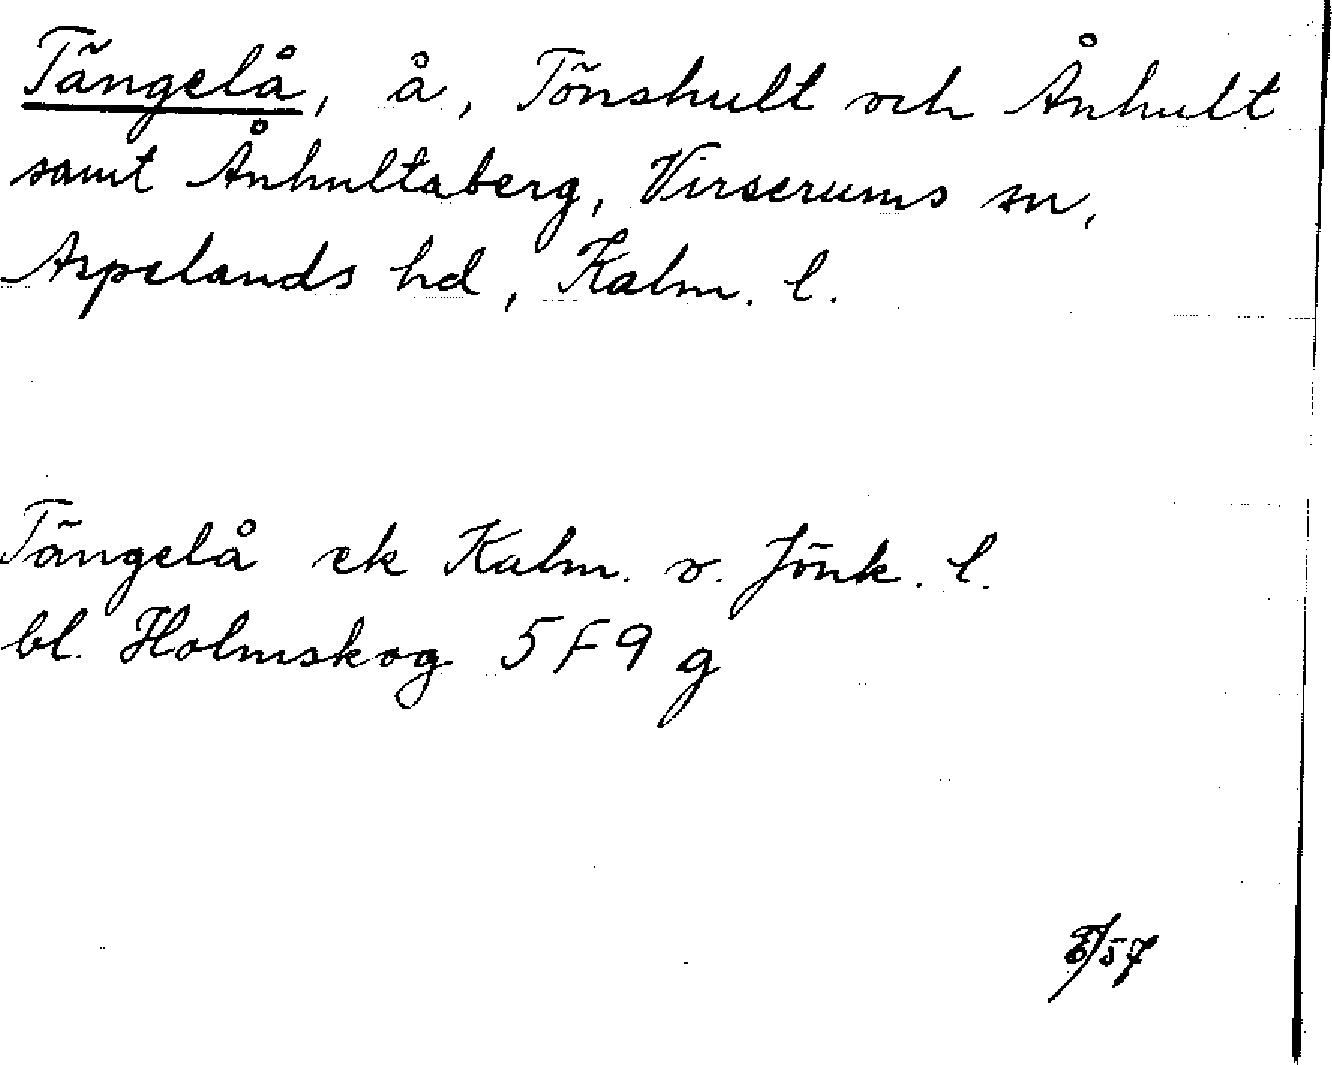 Tängelå, å, Tönshult och Ånhult
samt Ånhultaberg, Virserums sn,
Aspelands hd, Kalm. l.
Tängelå ek Kalm. o. Jönk. l.
bl. Holmskog 5F9g